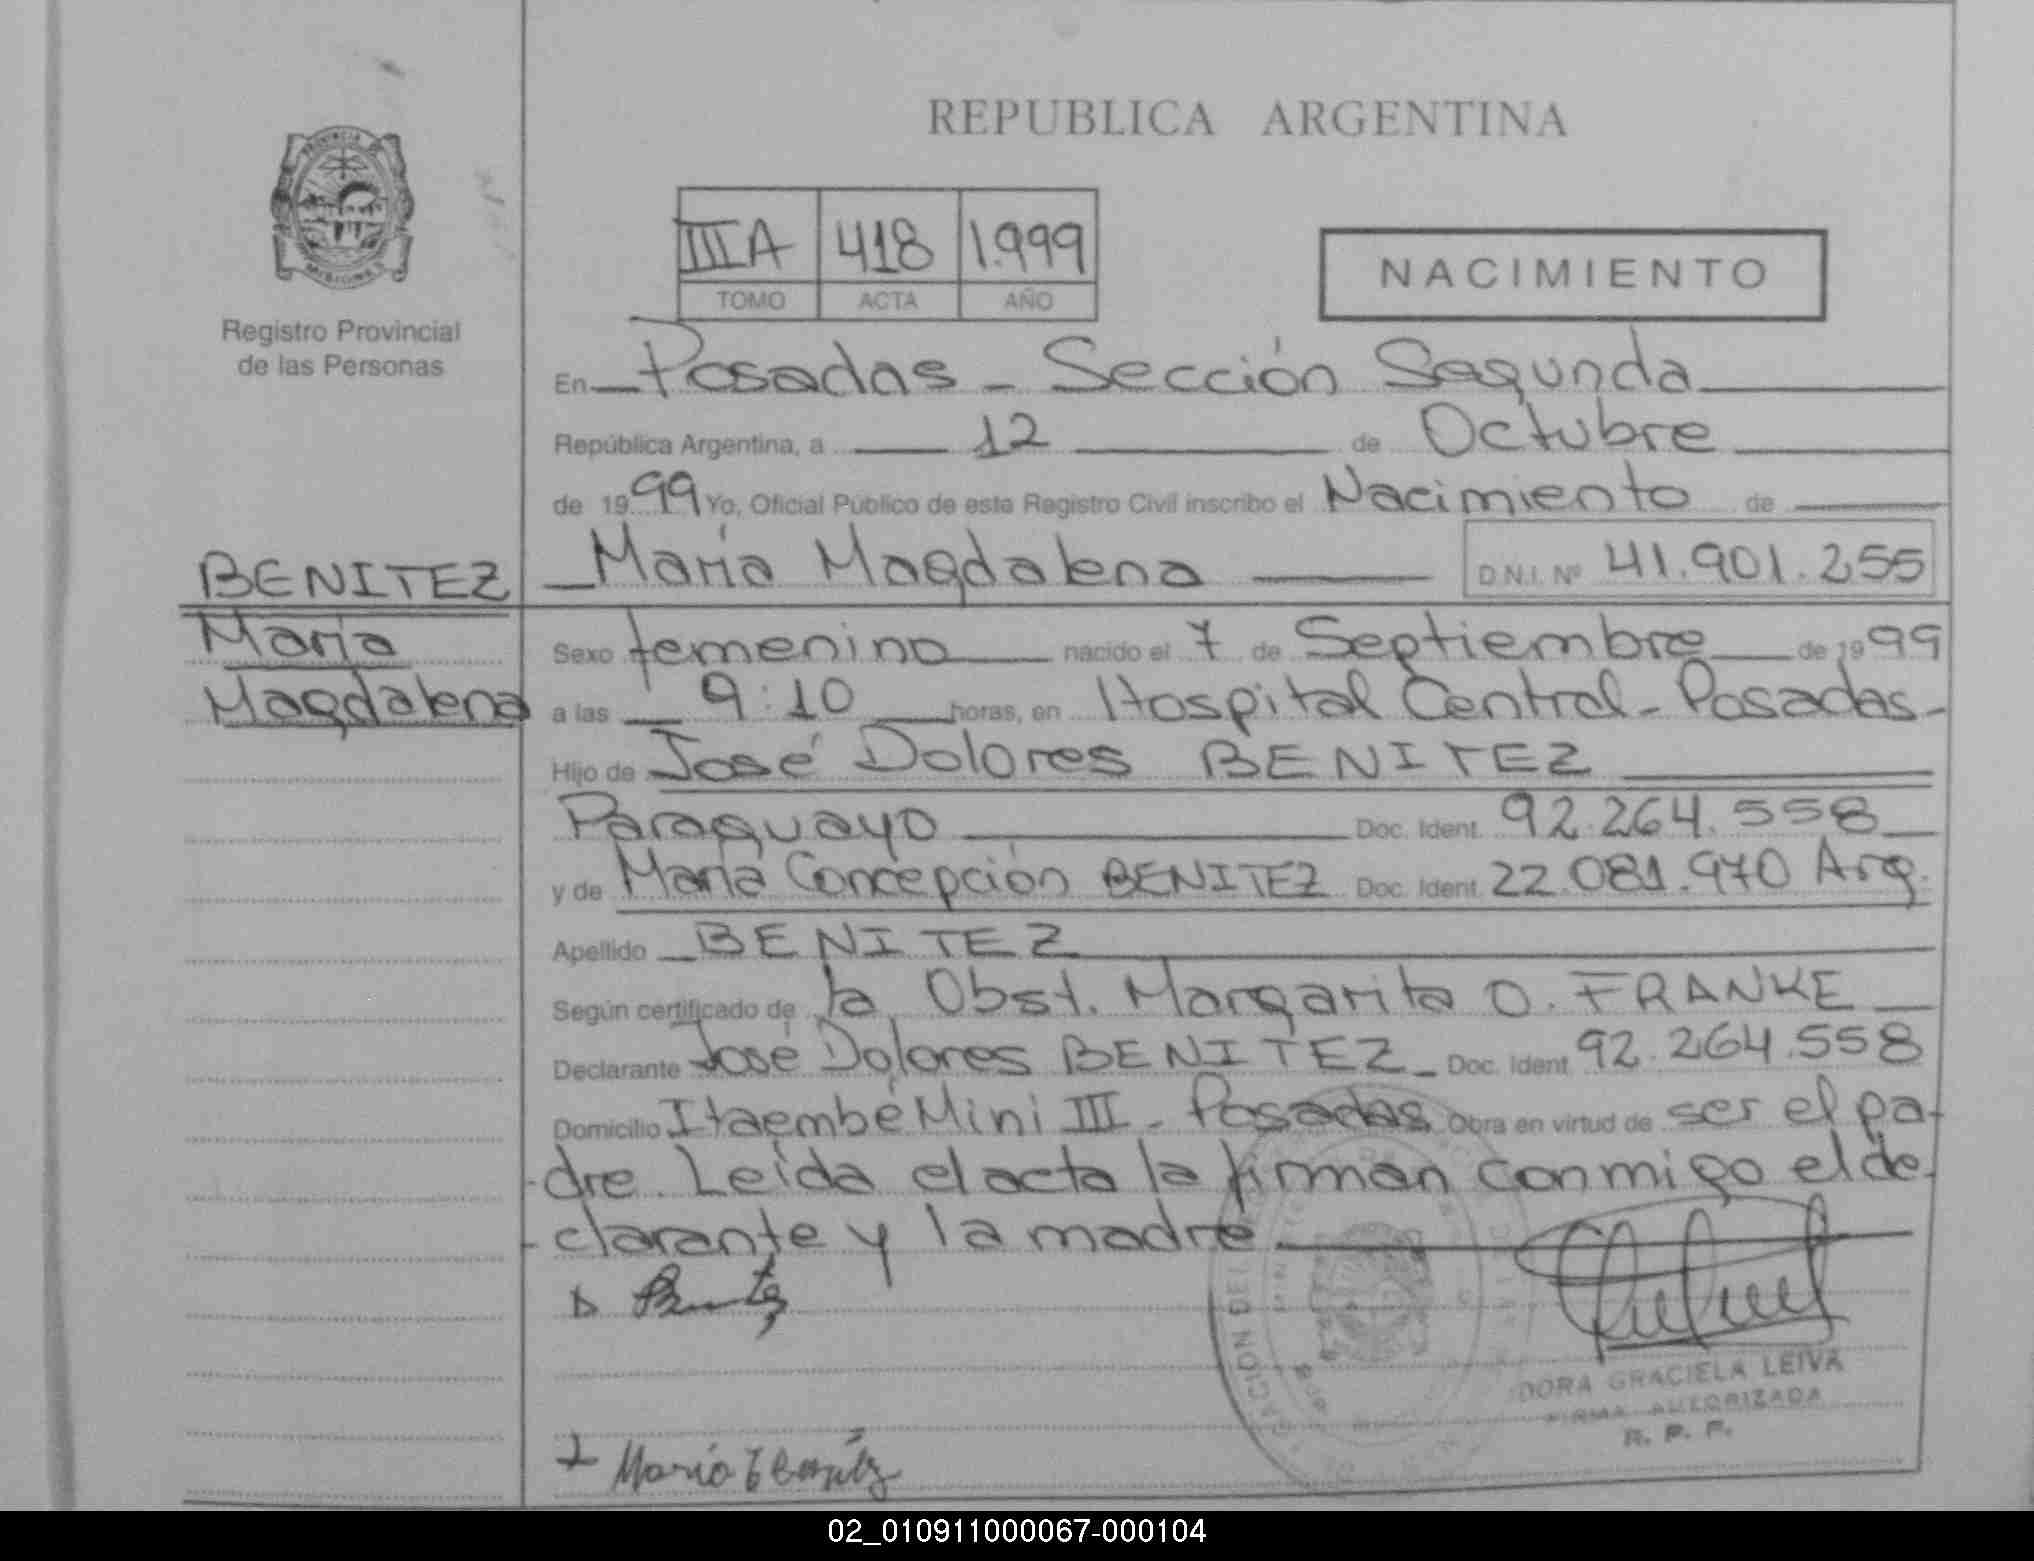 REPUBLICA ARGENTINA
PROVINCIA
MISIONES
Registro Provincial
de las Personas
IIIA 418 1.999
TOMO ACTA AÑO
NACIMIENTO
En Posadas - Sección Segunda
República Argentina, a 12 de Octubre
de 1999 Yo, Oficial Público de este Registro Civil inscribo el Nacimiento de
BENITEZ
María Magdalena D.N.I. Nº 41.901.255
María
Magdalena
Sexo femenino nacido el 7 de Septiembre de 1999
a las 9:10 horas, en Hospital Central - Posadas -
Hijo de José Dolores BENITEZ
Paraguayo Doc. Ident. 92.264.558
y de María Concepción BENITEZ Doc. Ident. 22.081.970 Arg.
Apellido BENITEZ
Según certificado de la Obst. Margarita O. FRANKE
Declarante José Dolores BENITEZ - Doc. Ident 92.264.558
Domicilio Itaembé Mini III - Posadas Obra en virtud de ser el pa-
-dre. Leída el acta la firman conmigo el de-
-clarante y la madre
DORA GRACIELA LEIVA
FIRMA AUTORIZADA
R. P. P.
María Benítez
02_010911000067-000104